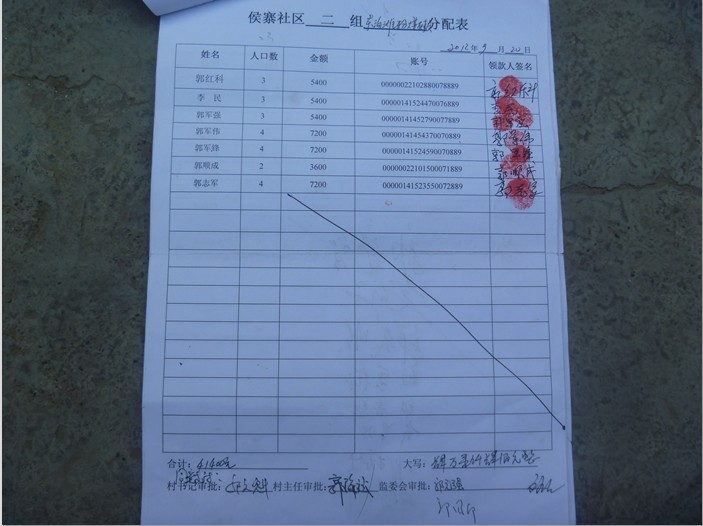 侯寨社区 二 组 分配表
2012年9月20日
姓名 人口数 金额 账号 领款人签名
郭红科 3 5400 00000022102880078889
李民 3 5400 00000141524470076889
郭军强 3 5400 00000141452790077889
郭军伟 4 7200 00000141454370070889
郭军锋 4 7200 00000141524590070889
郭顺成 2 3600 00000022101500071889
郭志军 4 7200 00000141523550072889
合计: 41400元 大写: 肆万壹仟肆佰元整
村书记审批: 村主任审批: 监委会审批: